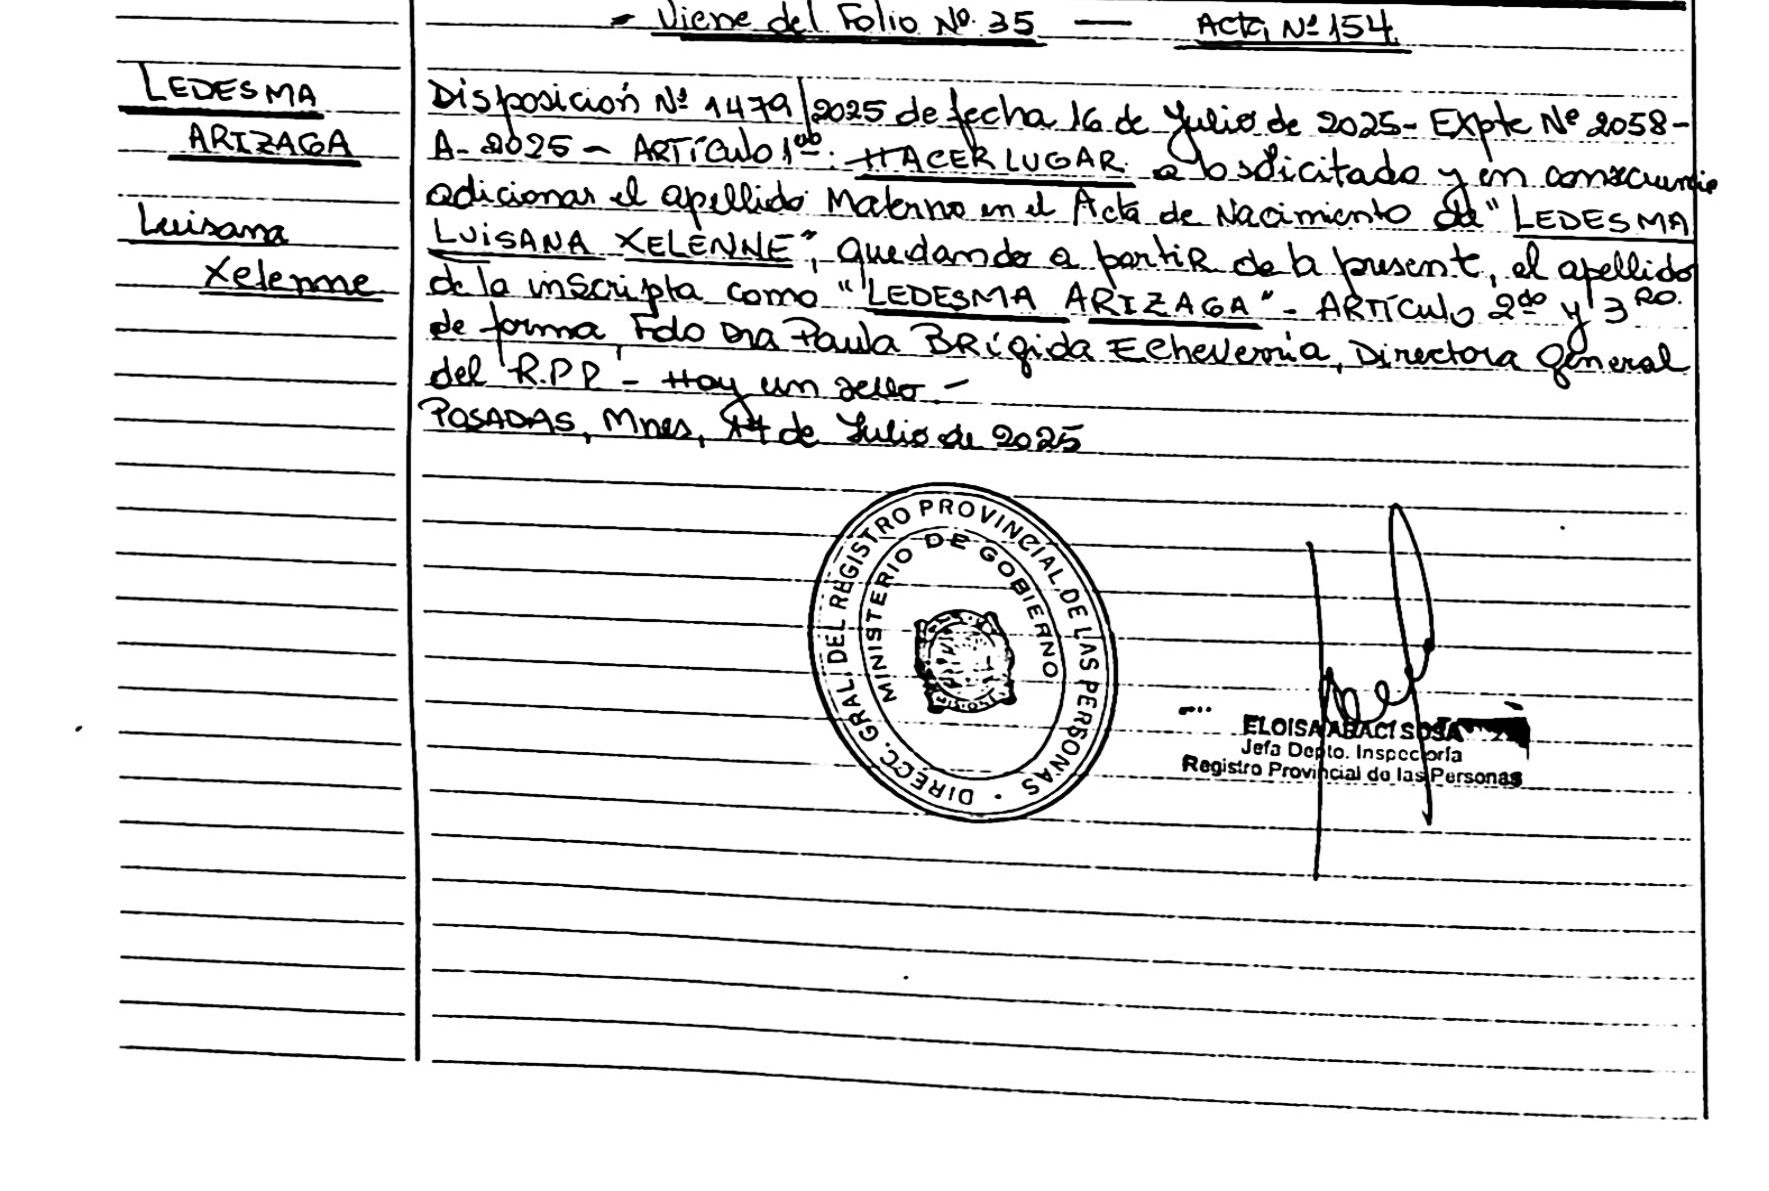 - Viene del Folio Nº 35 — Acta Nº 154
LEDESMA
ARIZAGA
Luisana
Xelenne
Disposición Nº 1479/2025 de fecha 16 de Julio de 2025- Expte Nº 2058-
A- 2025 - ARTÍCULO 1ro: HACER LUGAR a lo solicitado y en consecuencia
adicionar el apellido Materno en el Acta de Nacimiento de "LEDESMA
LUISANA XELENNE", quedando a partir de la presente, el apellido
de la inscripta como "LEDESMA ARIZAGA" - ARTÍCULO 2do y 3RO.
de forma, Fdo Dra Paula BRígida Echeverría, Directora General
del R.P.P. - Hay un sello. -
POSADAS, Mnes, de Julio de 2025
DIRECC. GRAL. DEL REGISTRO PROVINCIAL DE LAS PERSONAS
MINISTERIO DE GOBIERNO
ELOISA ARACI SOSA
Jefa Depto. Inspectoría
Registro Provincial de las Personas